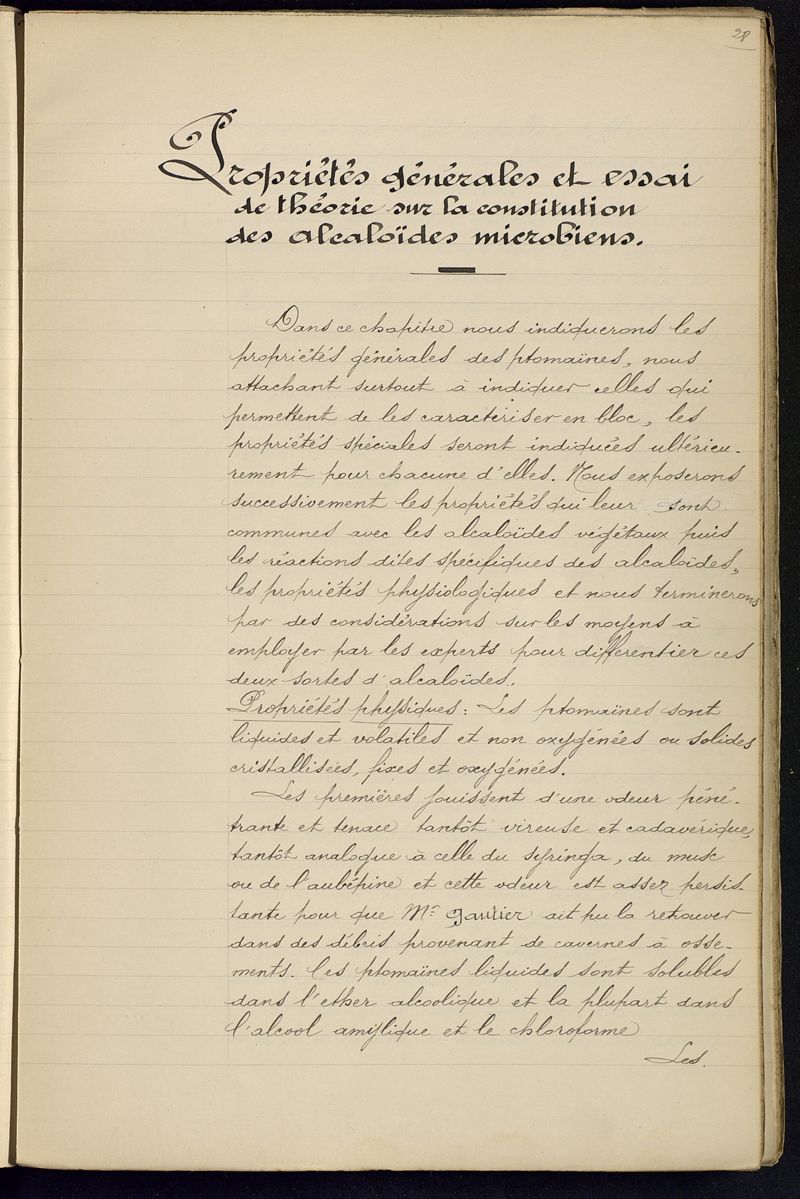 28
Propriétés générales et essai
de théorie sur la constitution
des alcaloïdes microbiens.
Dans ce chapitre nous indiquerons les
propriétés générales des ptomaïnes, nous
attachant surtout à indiquer celles qui
permettent de les caractériser en bloc, les
propriétés spéciales seront indiquées ultérieu-
rement pour chacune d'elles. Nous exposerons
successivement les propriétés qui leur sont
communes avec les alcaloïdes végétaux puis
les réactions dites spécifiques des alcaloïdes,
les propriétés physiologiques et nous terminerons
par des considérations sur les moyens à
employer par les experts pour differentier ces
deux sortes d'alcaloïdes.
Propriétés physiques: Les ptomaïnes sont
liquides et volatiles et non oxygénées ou solides
cristallisées, fixes et oxygénées.
Les premières jouissent d'une odeur péné-
trante et tenace tantôt vireuse et cadavérique,
tantôt analogue à celle du syringa, du musc
ou de l'aubépine et cette odeur est assez persis-
tante pour que Mr Gautier ait pu la retrouver
dans des débris provenant de cavernes à osse-
ments. Ces ptomaïnes liquides sont solubles
dans l'ether alcoolique et la plupart dans
l'alcool amylique et le chloroforme
Les.